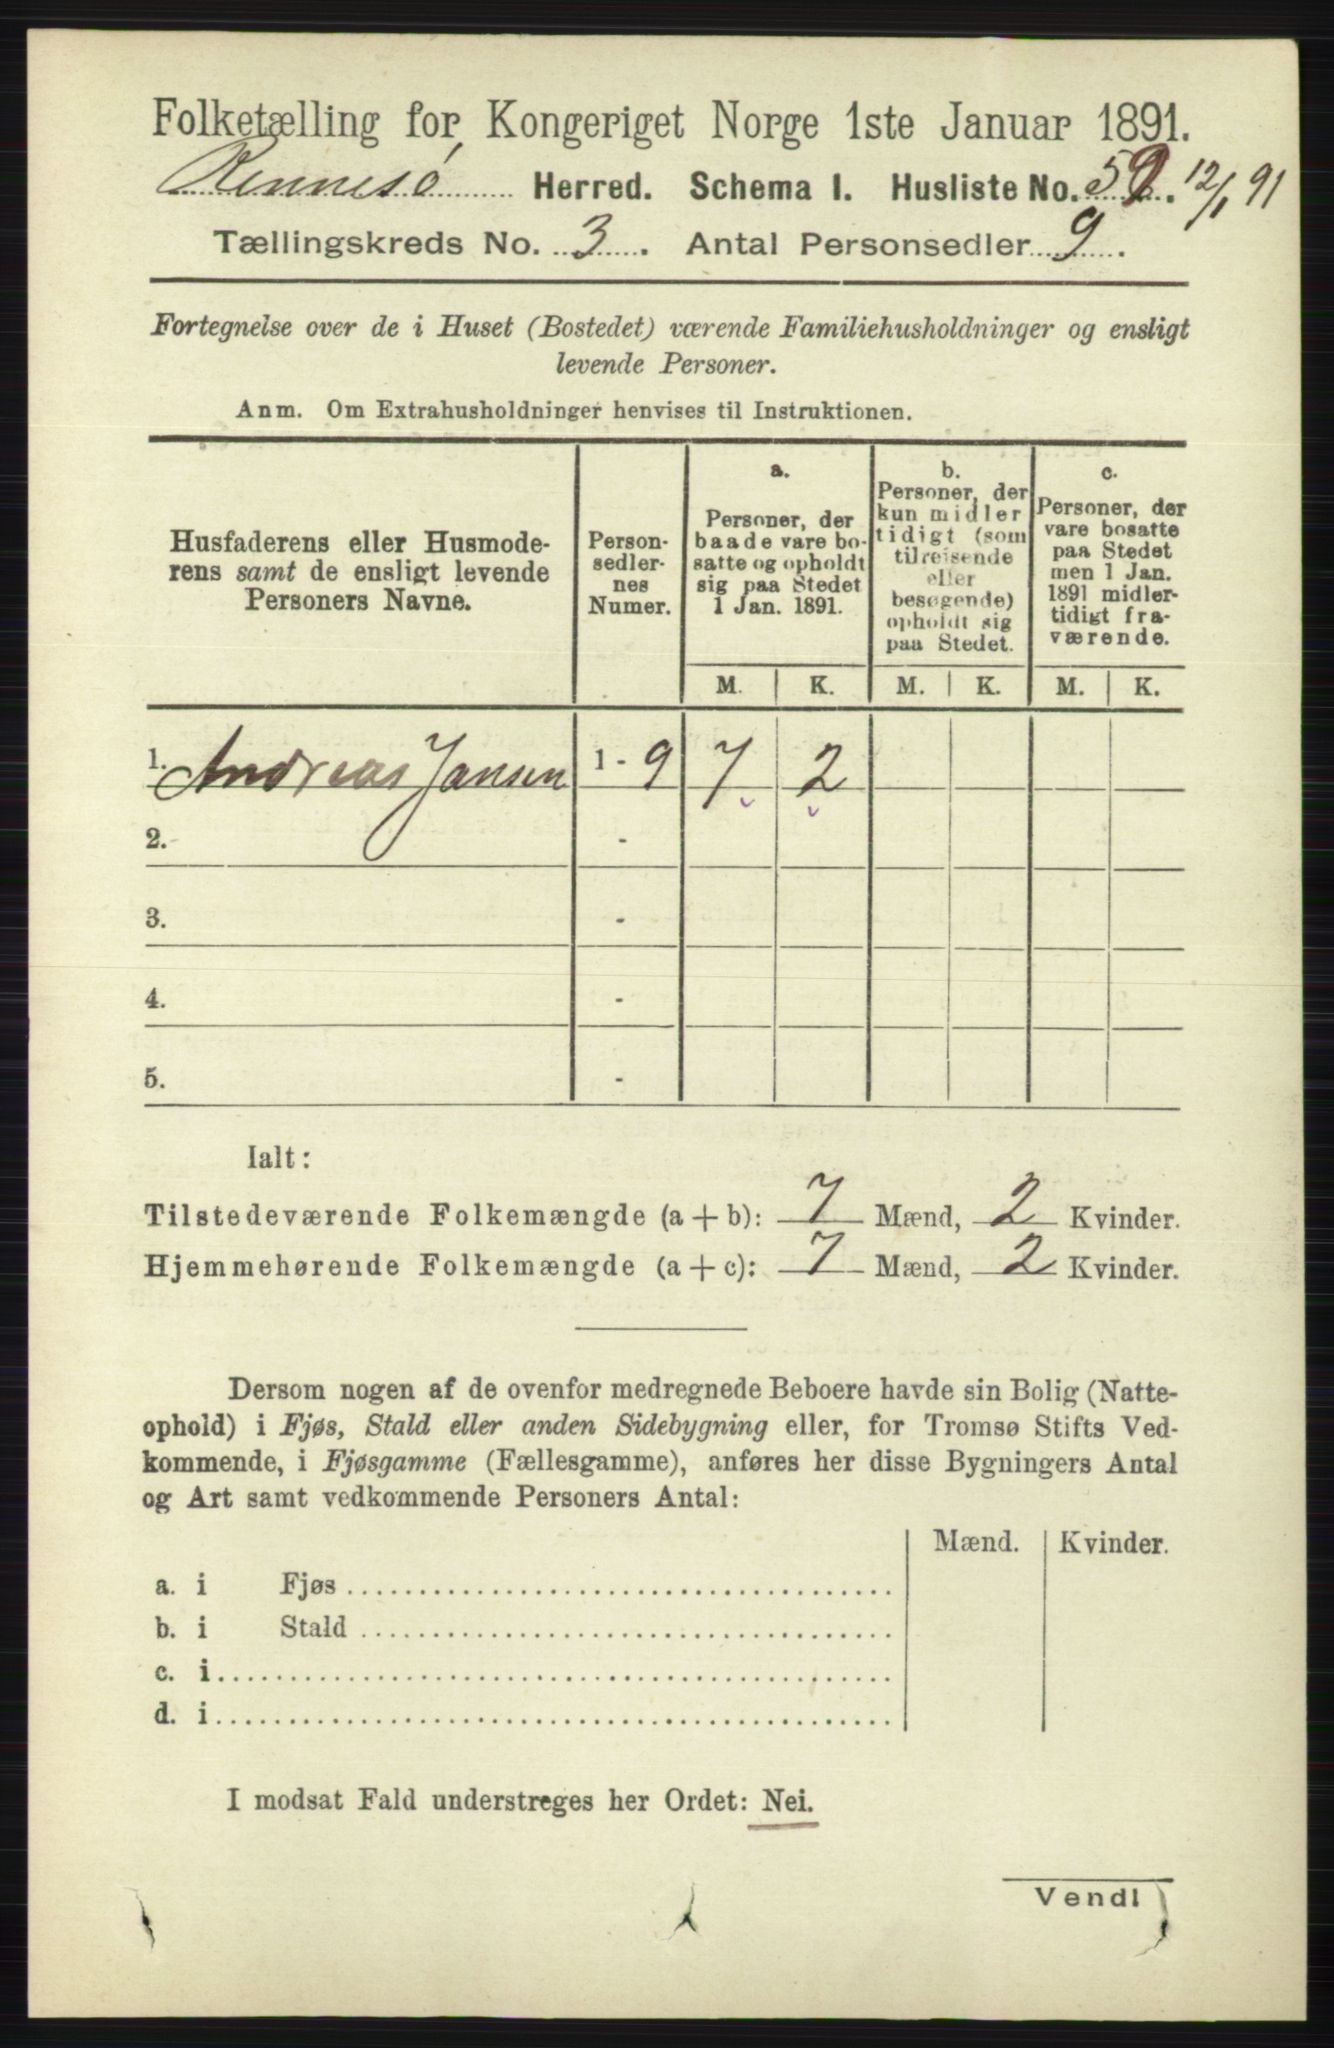 Folketælling for Kongeriget Norge 1ste Januar 1891.
Rennesö Herred. Schema I. Husliste No. 59. 12/1 91
Tællingskreds No. 3. Antal Personsedler 9.
Fortegnelse over de i Huset (Bostedet) værende Familiehusholdninger og ensligt
levende Personer.
Anm. Om Extrahusholdninger henvises til Instruktionen.
Husfaderens eller Husmode-
rens samt de ensligt levende
Personers Navne.
Person-
sedler-
nes
Numer.
a.
Personer, der
baade vare bo-
satte og opholdt
sig paa Stedet
1 Jan. 1891.
b.
Personer, der
kun midler
tidigt (som
tilreisende
eller
besøgende)
opholdt sig
paa Stedet.
c.
Personer, der
vare bosatte
paa Stedet
men 1 Jan.
1891 midler-
tidigt fra-
værende.
M. K. M. K. M. K.
1. Andreas Jansen 1 - 9 7 2
2. -
3. -
4. -
5. -
Ialt:
Tilstedeværende Folkemængde (a + b): 7 Mænd, 2 Kvinder.
Hjemmehørende Folkemængde (a + c): 7 Mænd, 2 Kvinder.
Dersom nogen af de ovenfor medregnede Beboere havde sin Bolig (Natte-
ophold) i Fjøs, Stald eller anden Sidebygning eller, for Tromsø Stifts Ved-
kommende, i Fjøsgamme (Fællesgamme), anføres her disse Bygningers Antal
og Art samt vedkommende Personers Antal:
Mænd. Kvinder.
a. i Fjøs
b. i Stald
c. i
d. i
I modsat Fald understreges her Ordet: Nei.
Vend!